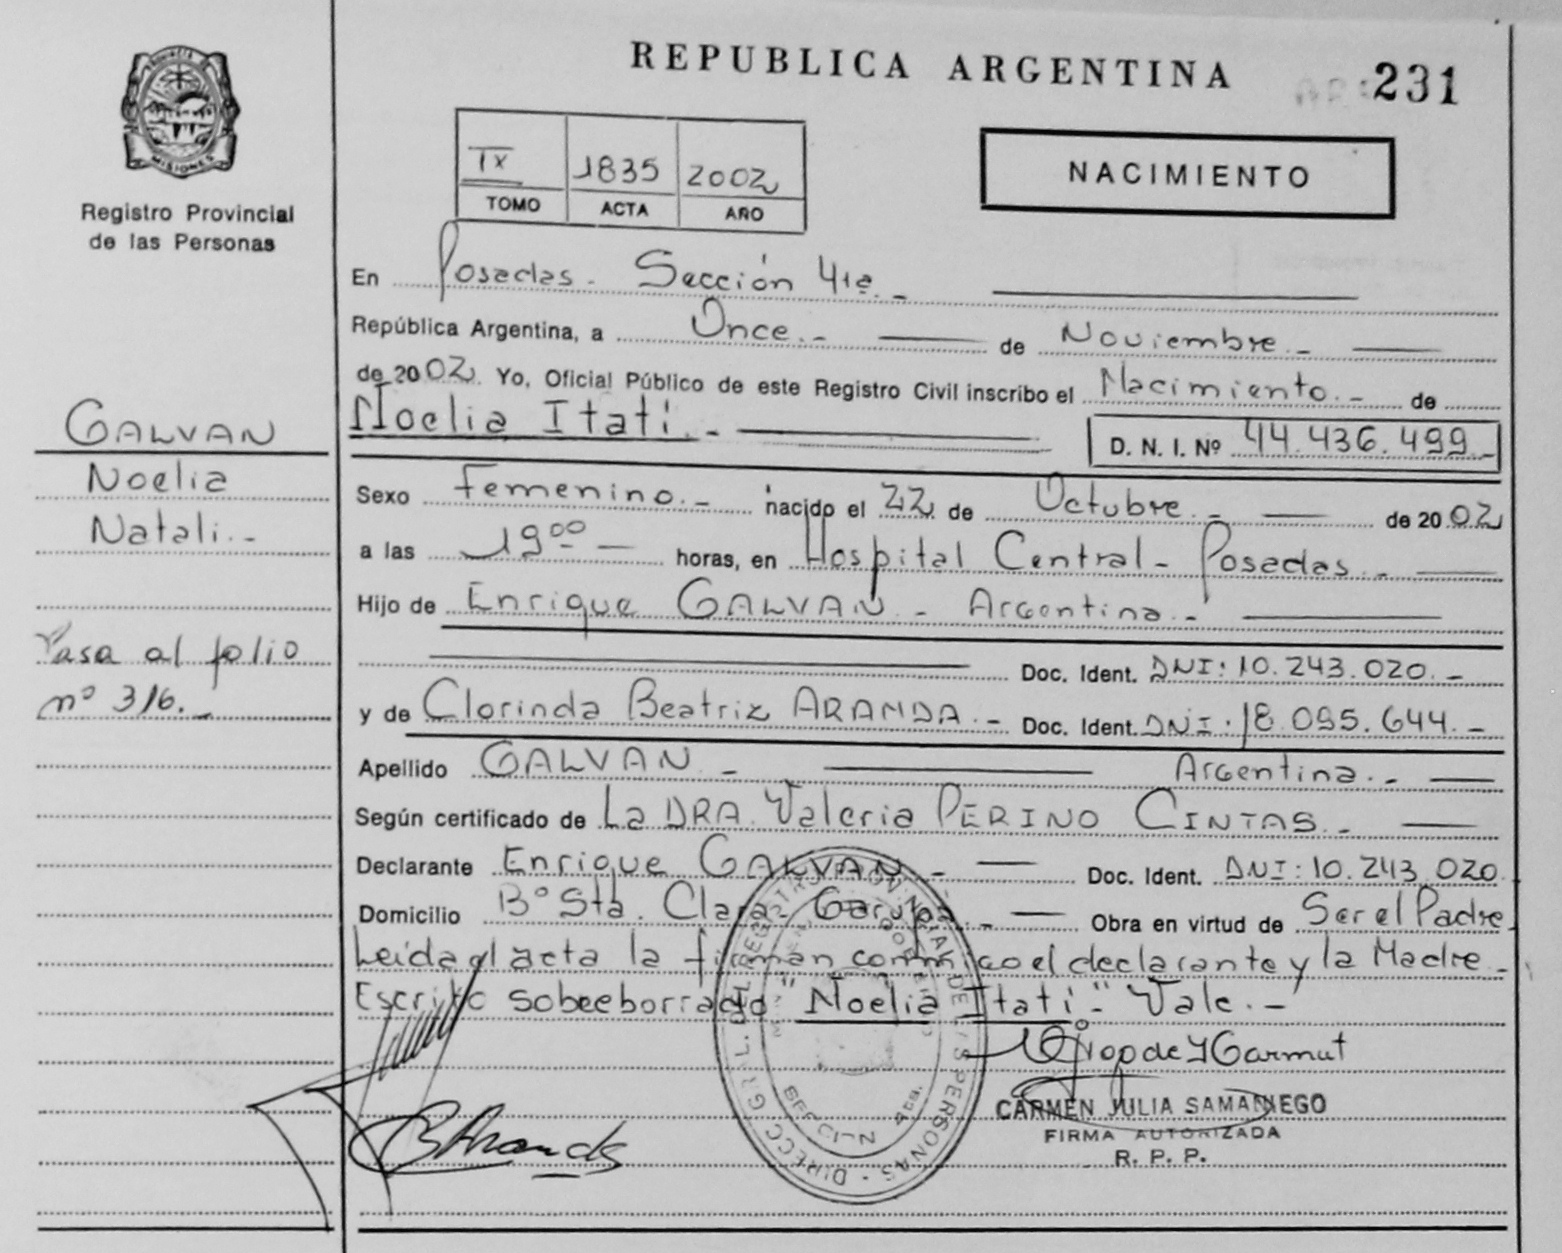 REPUBLICA ARGENTINA
231
MISIONES
Registro Provincial
de las Personas
IX 1835 2002
TOMO ACTA AÑO
NACIMIENTO
En Posadas. Sección 4ta.-
República Argentina, a Once.- de Noviembre.-
de 2002. Yo, Oficial Público de este Registro Civil inscribo el Nacimiento.- de
Noelia Itati.- D. N. I. Nº 44.436.499.-
GALVAN
Noelia
Natali.-
Pasa al folio
nº 316.-
Sexo Femenino.- nacido el 22 de Octubre.- de 2002
a las 19 00 horas, en Hospital Central- Posadas.-
Hijo de Enrique GALVAN.- Argentina.-
Doc. Ident. DNI: 10.243.020.-
y de Clorinda Beatriz ARANDA.- Doc. Ident. DNI: 18.095.644.-
Apellido GALVAN.- Argentina.-
Según certificado de La DRA. Valeria PERINO CINTAS.-
Declarante Enrique GALVAN.- Doc. Ident. DNI: 10.243.020
Domicilio Bº Sta. Clara- Garupa.- Obra en virtud de Ser el Padre.
Leida el acta la firman conmigo el declarante y la Madre.-
Escrito sobreborrado "Noelia Itati" Vale.-
CARMEN JULIA SAMANIEGO
FIRMA AUTORIZADA
R. P. P.
DIRECC. GRAL. DEL REGISTRO PROVINCIAL DE LAS PERSONAS
SECCION 4ta.